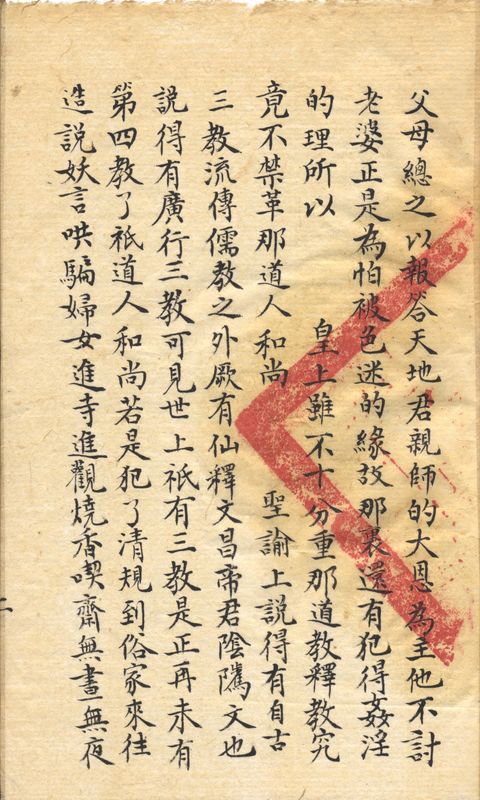 父母總之以報答天地君親師的大恩為主他不討
老婆正是為怕被色迷的緣故那裏還有犯得姦淫
的理所以　皇上雖不十分重那道教釋教究
竟不禁革那道人和尚　聖諭上說得有自古
三教流傳儒教之外厥有仙釋文昌帝君陰隲文也
說得有廣行三教可見世上祇有三教是正再未有
第四教了祇道人和尚若是犯了清規到俗家來往
造說妖言哄騙婦女進寺進觀燒香喫齋無晝無夜